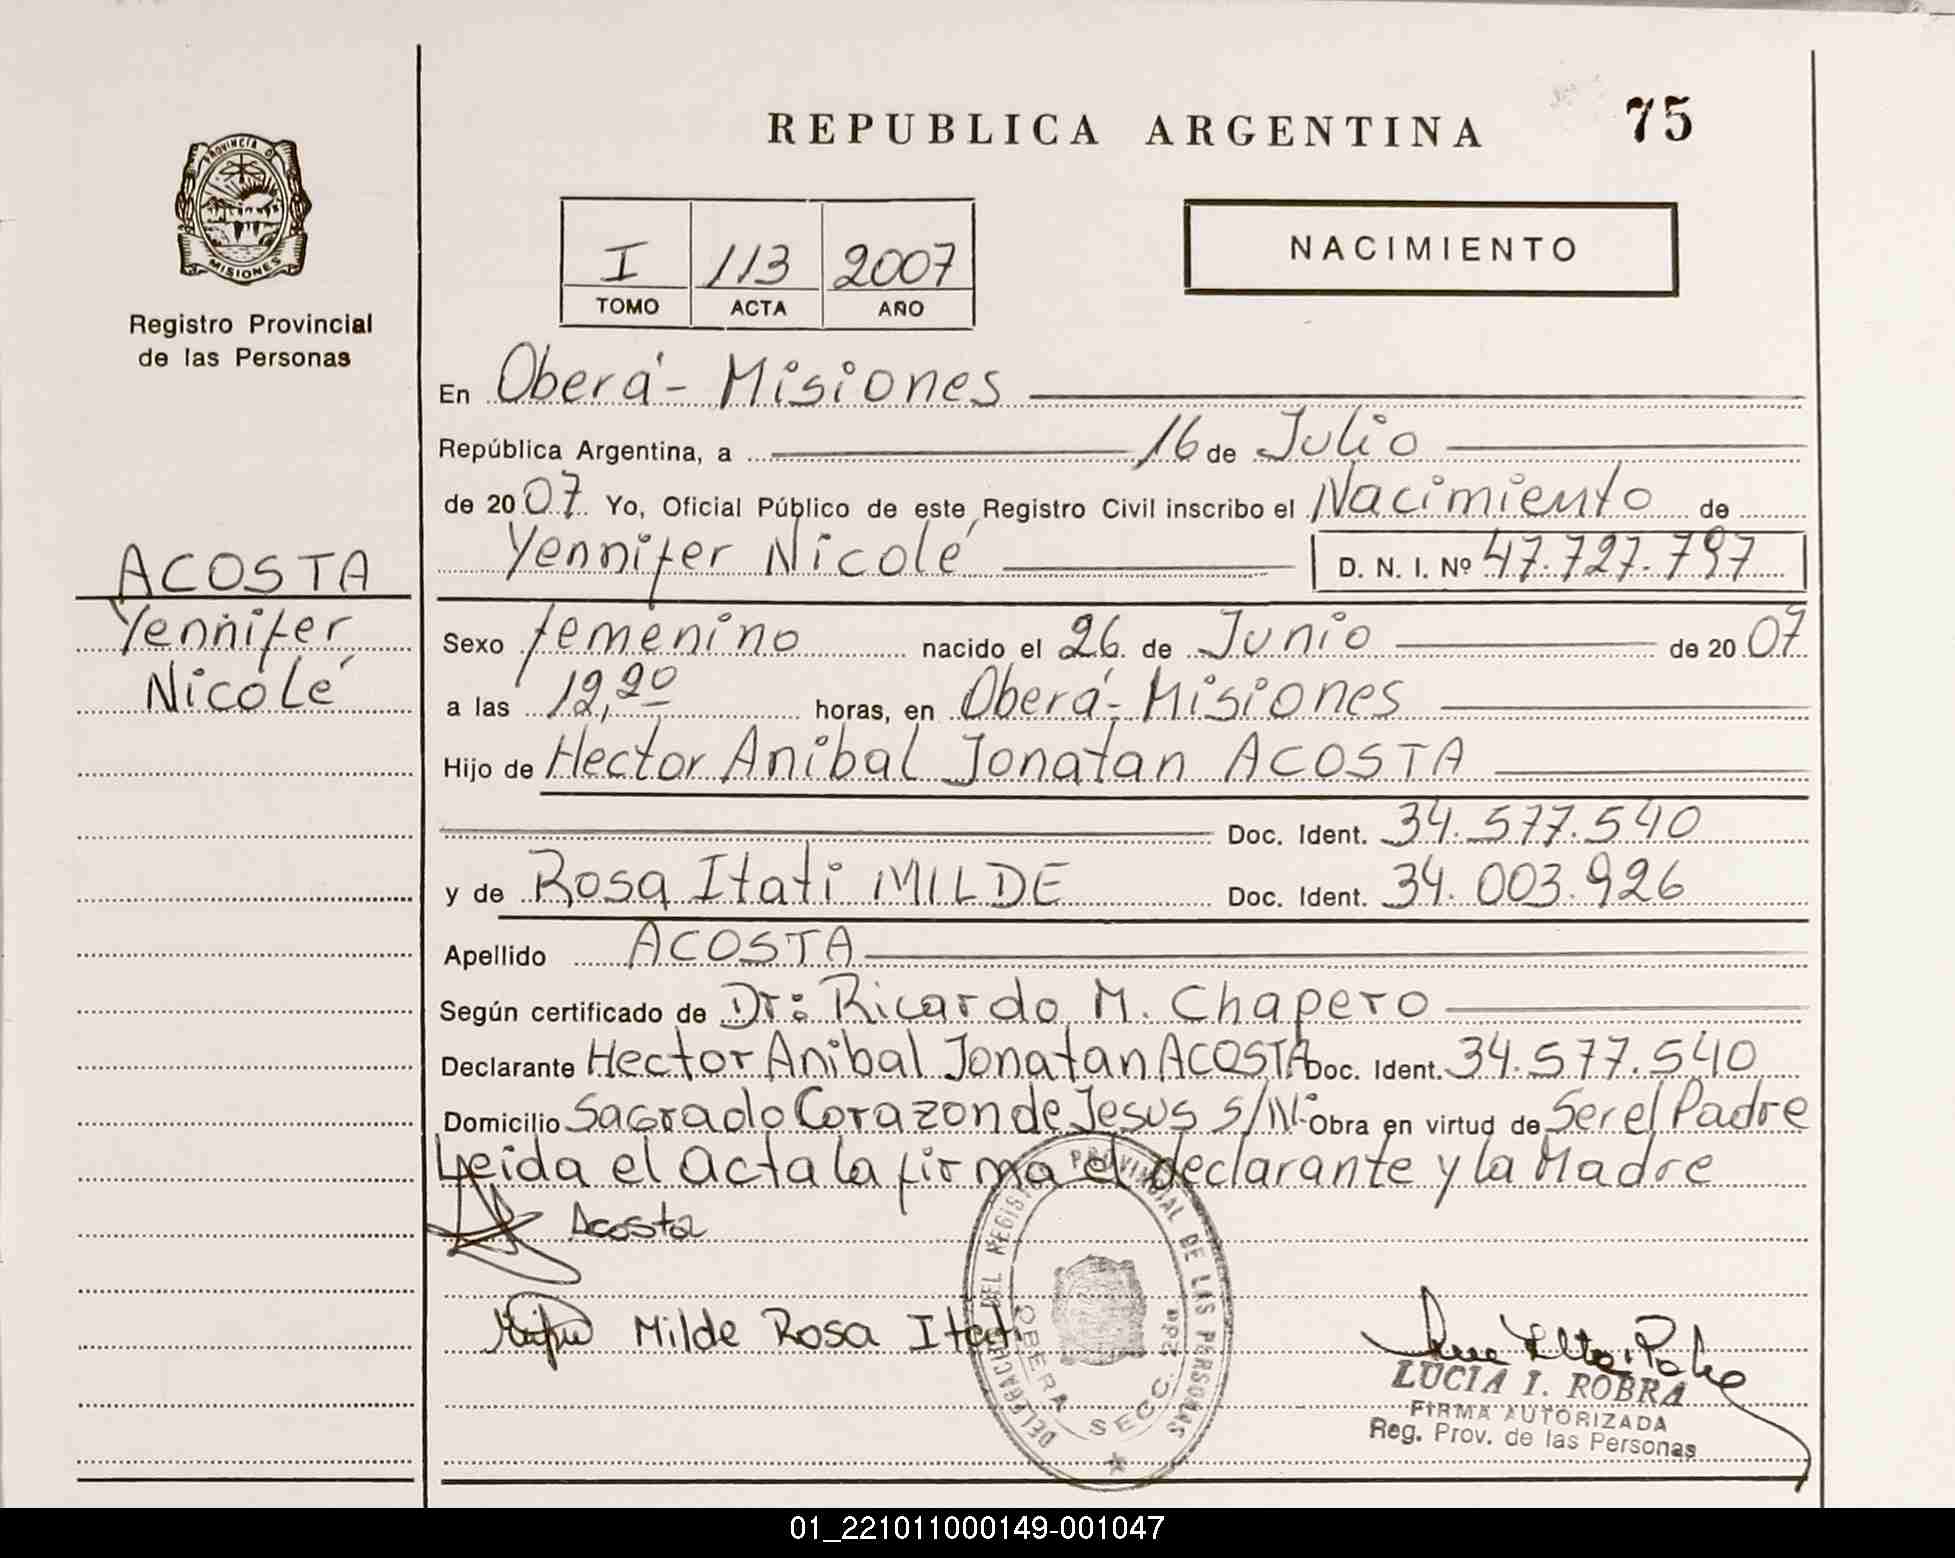 REPUBLICA ARGENTINA 75
PROVINCIA D
MISIONES
Registro Provincial
de las Personas
I 113 2007
TOMO ACTA AÑO
NACIMIENTO
En Oberá - Misiones
República Argentina, a 16 de Julio
de 2007 Yo, Oficial Público de este Registro Civil inscribo el Nacimiento de
Yennifer Nicolé D. N. I. Nº 47.727.797
ACOSTA
Yennifer
Nicolé
Sexo femenino nacido el 26 de Junio de 2007
a las 12,20 horas, en Oberá - Misiones
Hijo de Hector Anibal Jonatan ACOSTA
Doc. Ident. 34.577.540
y de Rosa Itati MILDE Doc. Ident. 34.003.926
Apellido ACOSTA
Según certificado de Dr: Ricardo M. Chapero
Declarante Hector Anibal Jonatan ACOSTA Doc. Ident. 34.577.540
Domicilio Sagrado Corazon de Jesus S/Nº Obra en virtud de Ser el Padre
Leida el acta la firma el declarante y la Madre
Acosta
Milde Rosa Itati
DELEGACION DEL REGISTRO PROVINCIAL DE LAS PERSONAS
OBERA SECC. 2da
LUCIA I. ROBRA
FIRMA AUTORIZADA
Reg. Prov. de las Personas
01_221011000149-001047